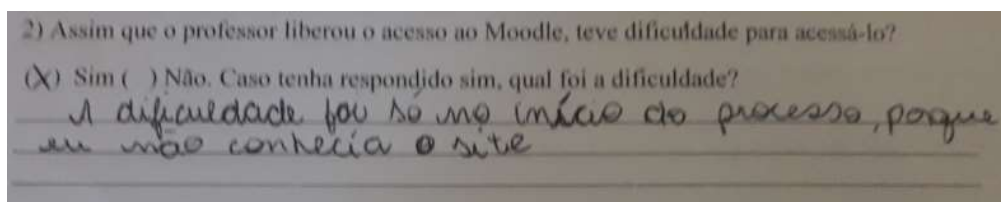 2) Assim que o professor liberou o acesso ao Moodle, teve dificuldade para acessá-lo?
(X) Sim ( ) Não. Caso tenha respondido sim, qual foi a dificuldade?
A dificuldade fou só no início do processo, porque
eu não conhecia o site